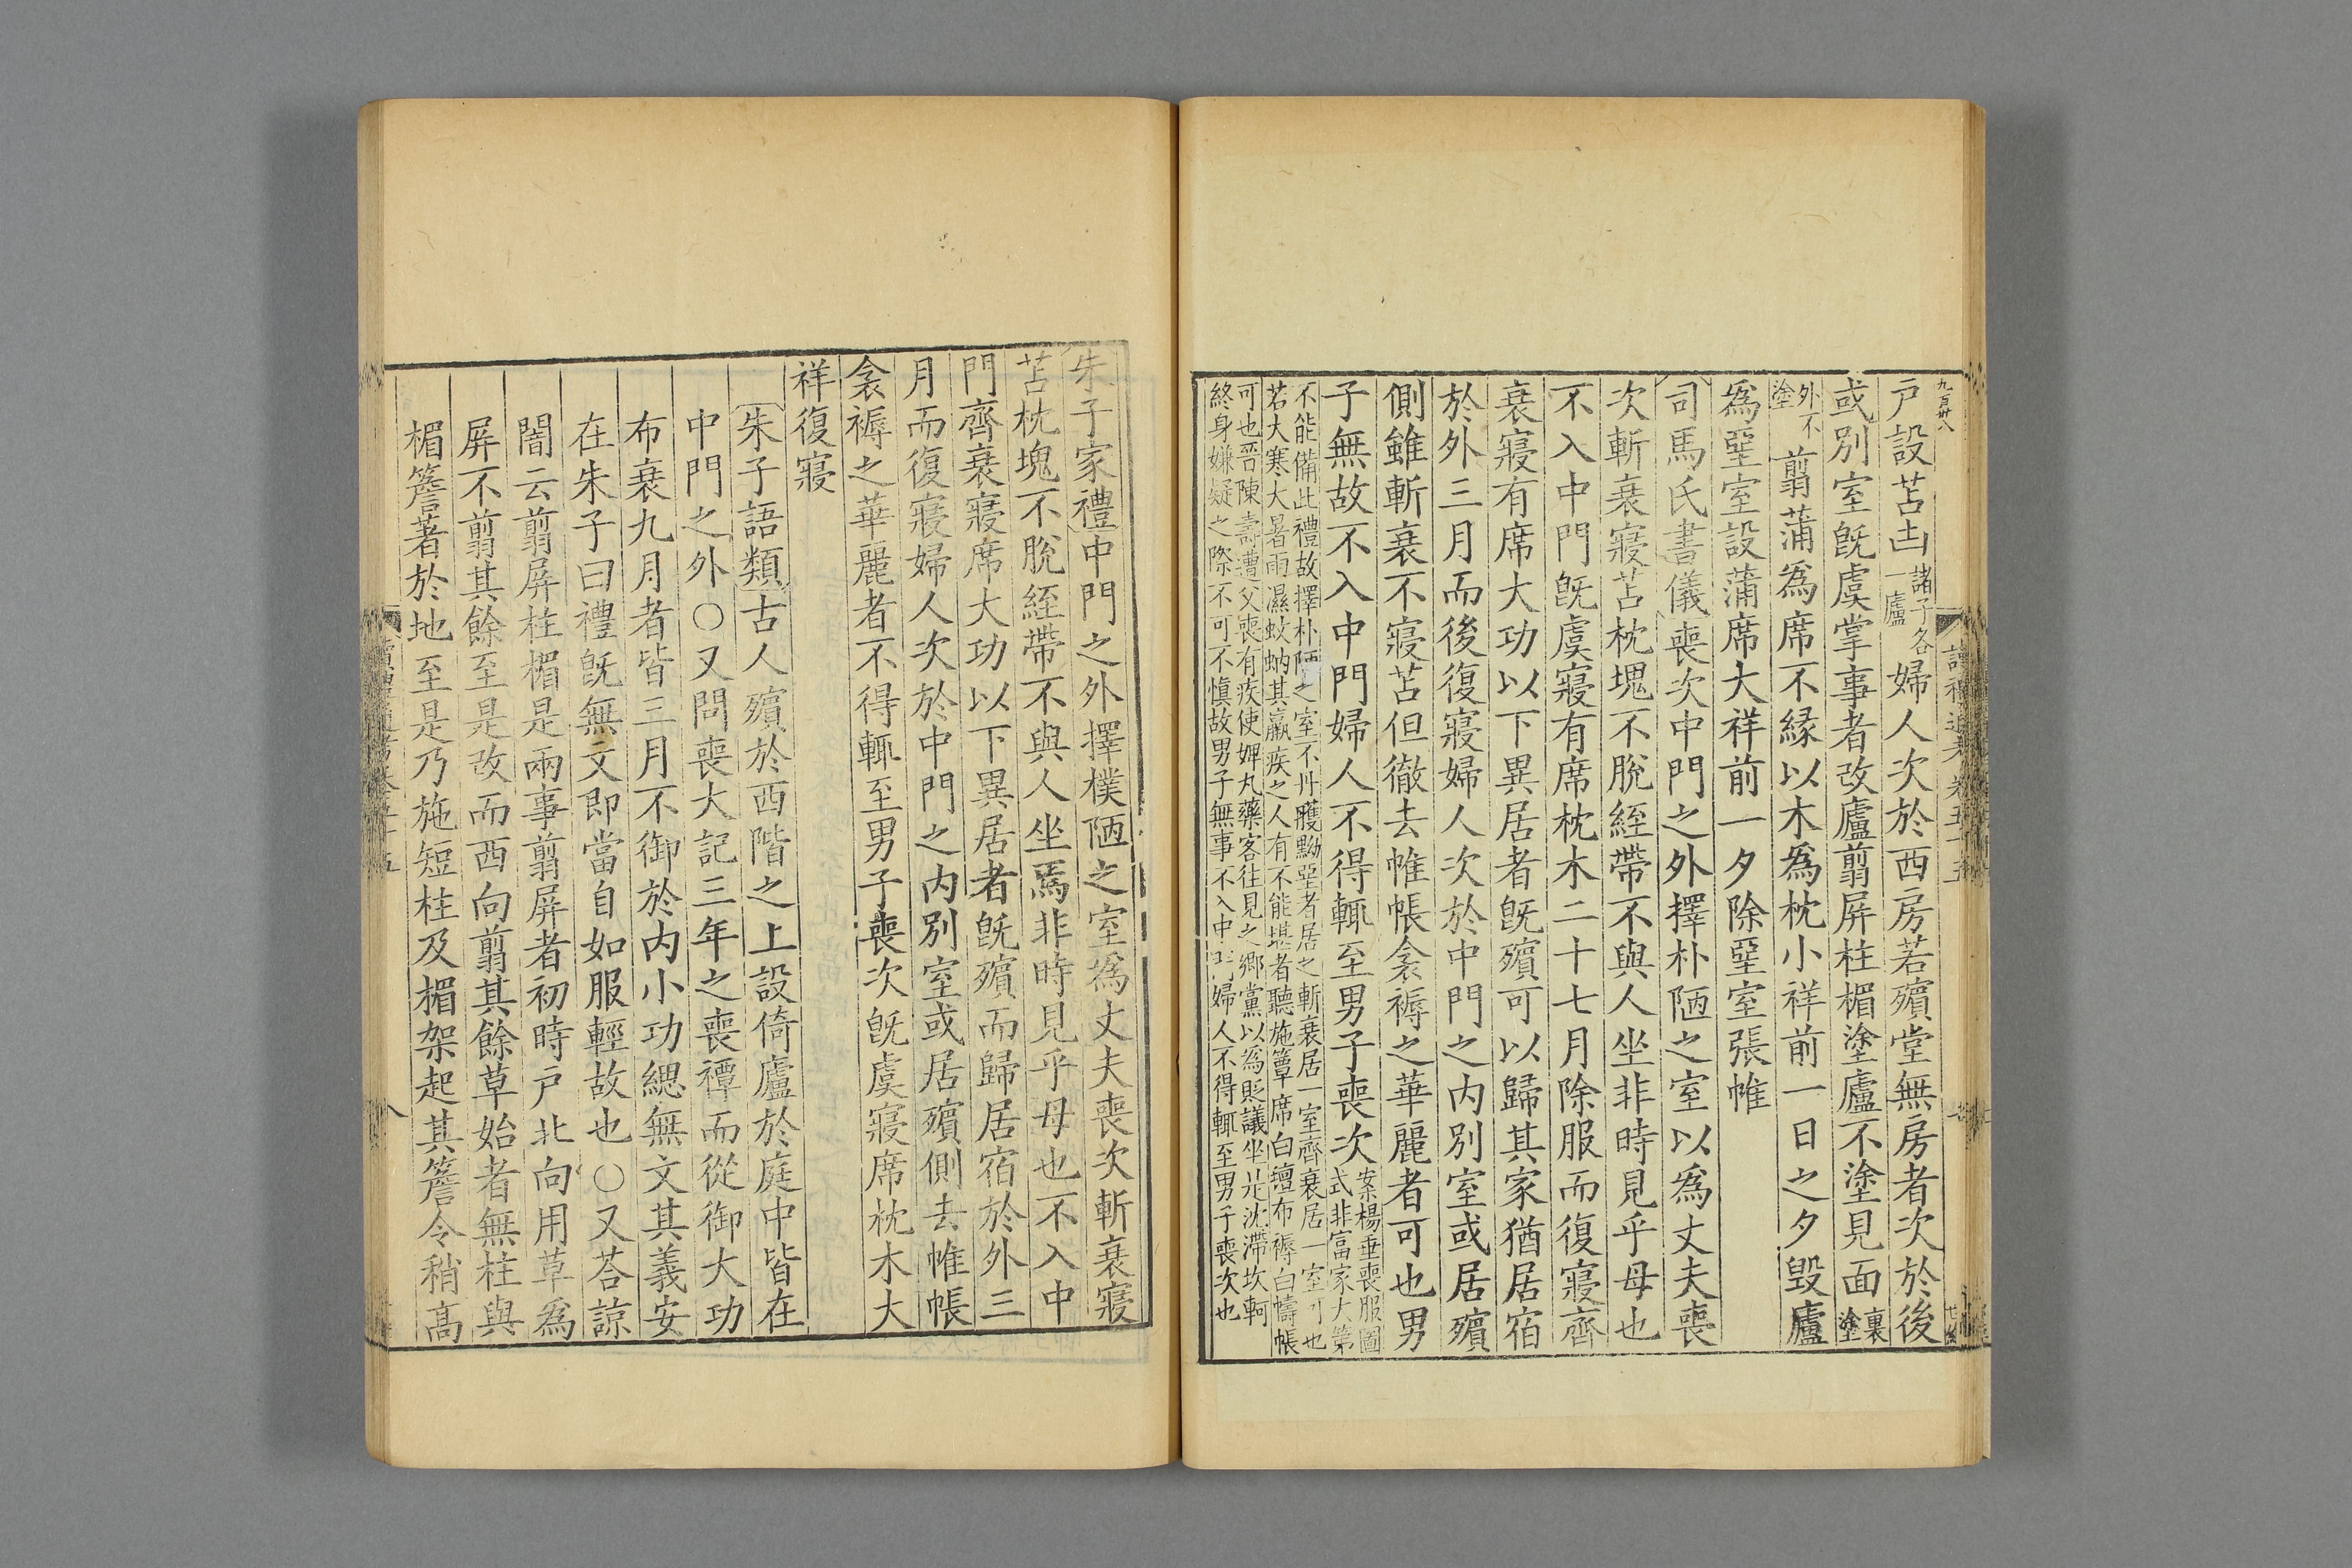 戶設苫凷諸子各一廬婦人次於西房若殯堂無房者次於後
或別室旣虞掌事者改廬翦屏柱楣塗廬不塗見面裏塗
外不塗翦蒲爲席不緣以木爲枕小祥前一日之夕毀廬
爲堊室設蒲席大祥前一夕除堊室張帷
司馬氏書儀喪次中門之外擇朴陋之室以爲丈夫喪
次斬衰寢苫枕塊不脫絰帶不與人坐非時見乎母也
不入中門旣虞寢有席枕木二十七月除服而復寢齊
衰寢有席大功以下異居者旣殯可以歸其家猶居宿
於外三月而後復寢婦人次於中門之内別室或居殯
側雖斬衰不寢苫但徹去帷帳衾褥之華麗者可也男
子無故不入中門婦人不得輒至男子喪次案楊垂喪服圖式非富家大第
不能備此禮故擇朴陋之室不丹雘黝堊者居之斬衰居一室齊衰居一室可也
若大寒大暑雨濕蚊蚋其羸疾之人有不能堪者聽施簟席白氊布褥白幬帳
可也晉陳壽遭父喪有疾使婢丸藥客往見之鄉黨以爲貶議坐是沈滯坎軻
終身嫌疑之際不可不愼故男子無事不入中門婦人不得輒至男子喪次也
九百卅八
讀禮通考卷五十五
朱子家禮中門之外擇樸陋之室爲丈夫喪次斬衰寢
苫枕塊不脫絰帶不與人坐焉非時見乎母也不入中
門齊衰寢席大功以下異居者旣殯而歸居宿於外三
月而復寢婦人次於中門之内別室或居殯側去帷帳
衾褥之華麗者不得輒至男子喪次旣虞寢席枕木大
祥復寢
朱子語類古人殯於西階之上設倚廬於庭中皆在
中門之外○又問喪大記三年之喪禫而從御大功
布衰九月者皆三月不御於内小功緦無文其義安
在朱子曰禮旣無文即當自如服輕故也○又荅諒
闇云翦屏柱楣是兩事翦屏者初時戶北向用草爲
屏不翦其餘至是改而西向翦其餘草始者無柱與
楣簷著於地至是乃施短柱及楣架起其簷令稍高
讀禮通考卷五十五
八